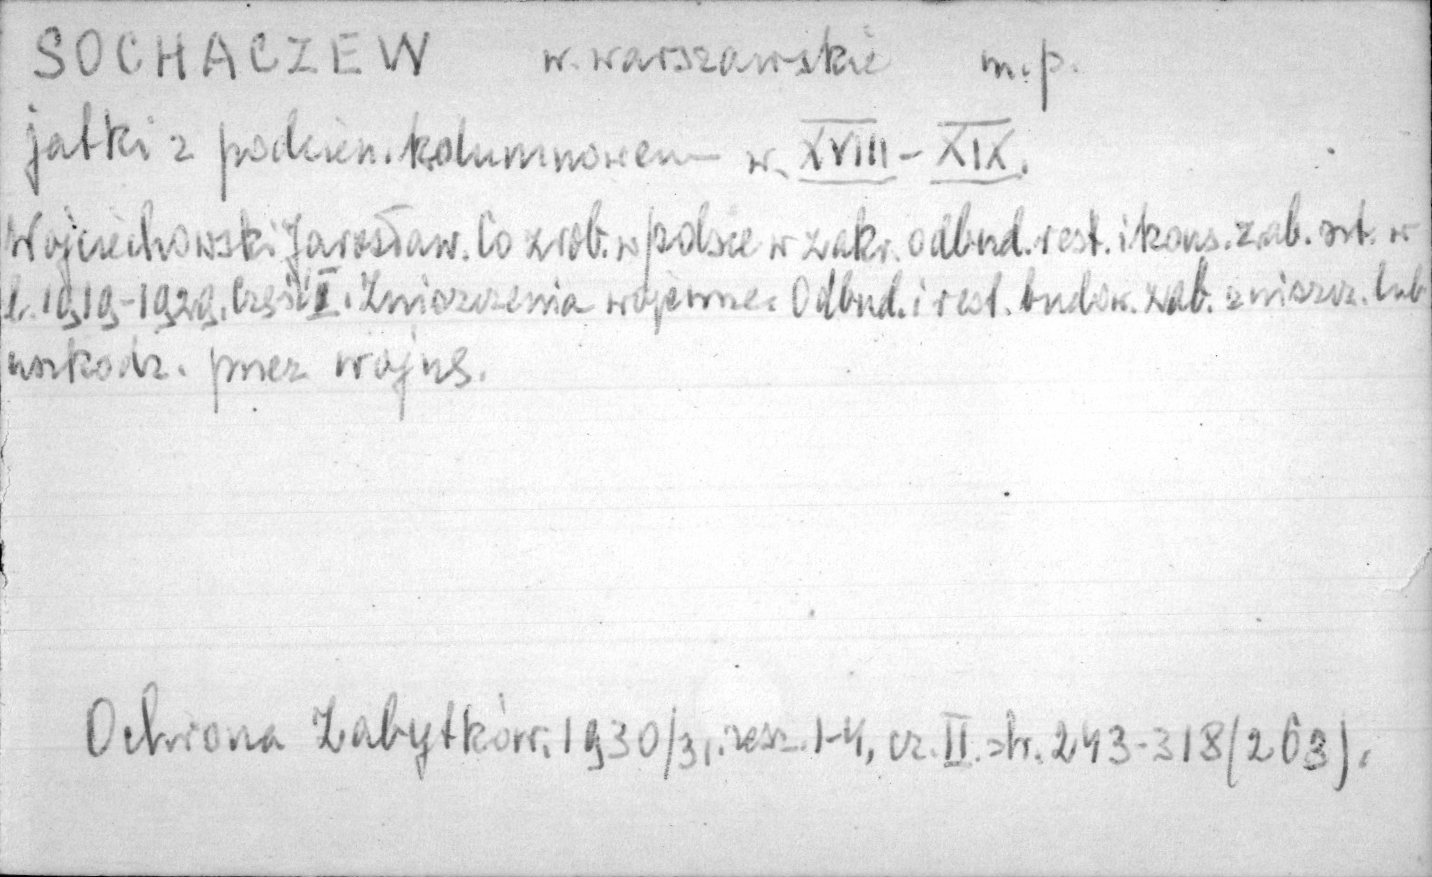 SOCHACZEW w. warszawskie m.p.
jatki z podcien. kolumnowem w. XVIII - XIX.
Wojciechowski Jarosław. Co zrob. w Polsce w zakr. odbud. rest. i kons. zab. szt. w
l. 1919-1929. Część II. Zniszczenia wojenne. Odbud. i rest. budow. zab. zniszcz. lub
uszkodz. przez wojnę.
Ochrona Zabytków. 1930/31. zesz. 1-4, cz. II. str. 243-318 (263).